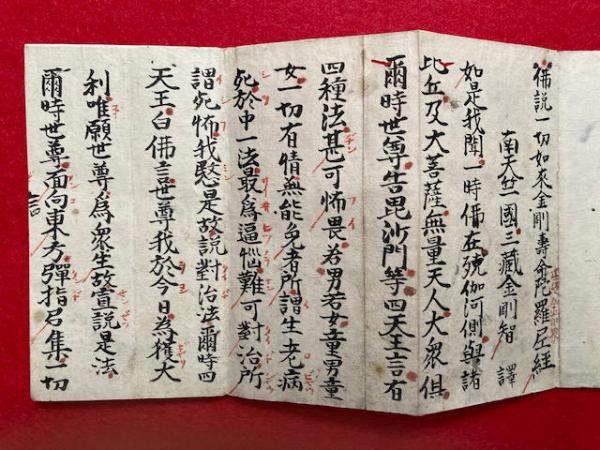 佛説一切如來金剛壽命陀羅尼經
南天竺國三藏金剛智 譯
如是我聞一時佛在殑伽河側與諸
比丘及大菩薩無量天人大衆俱
爾時世尊告毘沙門等四天王言有
四種法甚可怖畏若男若女童男童
女一切有情無能免者所謂生老病
死於中一法最爲逼惱難可對治所
謂死怖我愍是故説對治法爾時四
天王白佛言世尊我於今日為獲大
利唯願世尊爲衆生故宣説是法
爾時世尊面向東方彈指召集一切
言